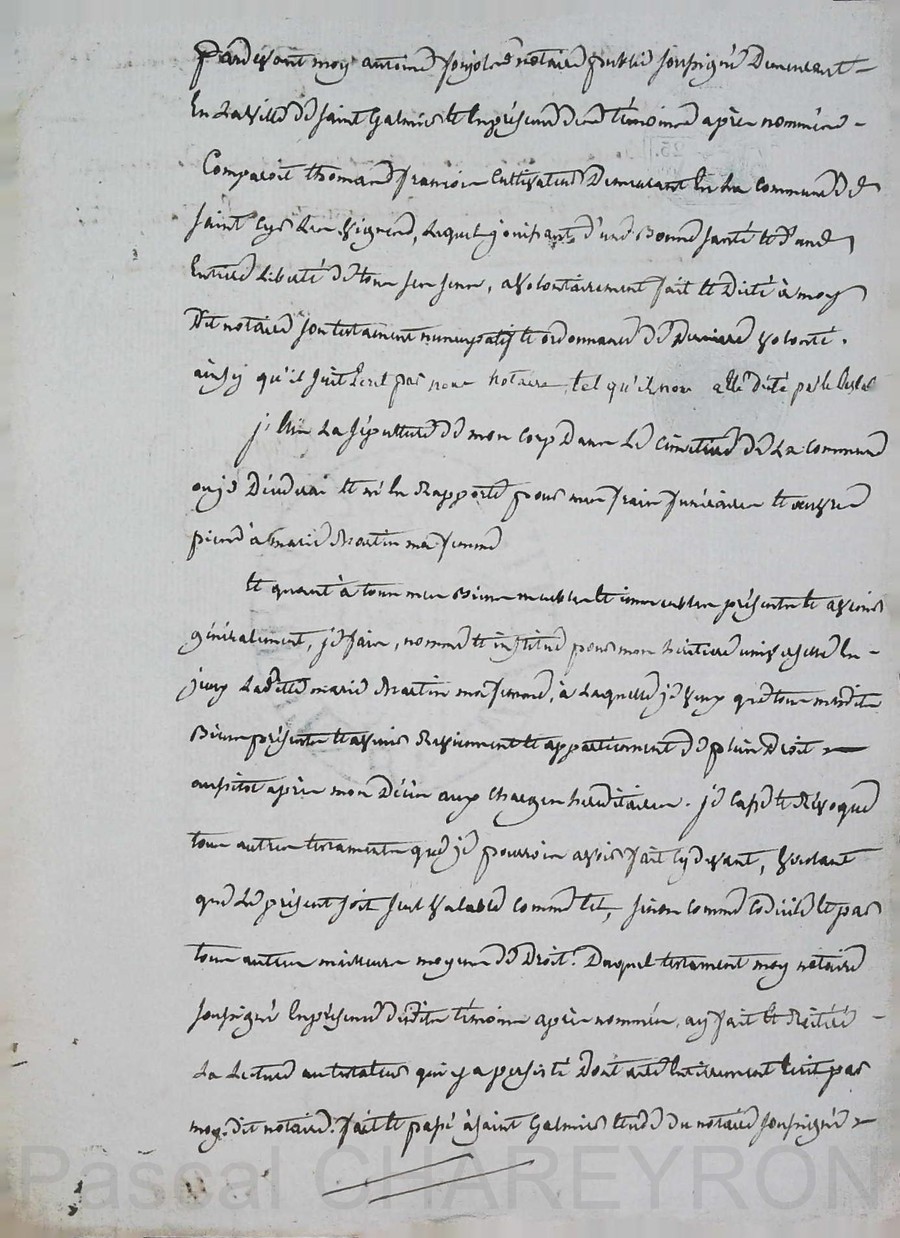 Pardevant moy antoine notaire public soussigné Demeurant
En La Ville de Saint Galmier et En présence de témoins après nommés
Comparoit thomas françois Cultivateur Demeurant En La Commune de
Saint Cyr Les Vignes, Lequel jouissant d'une Bonne santé et dans
Entiere Liberté de tous ses sens, a volontairement fait et Dicté à moy
Dit notaire son testament nuncupatif et ordonnance de Derniere volonté.
ainsy qu'il suit Ecrit par nous notaire tel qu'il nous a été dicté par le
j'Elis La sépulture de mon Corps Dans Le Cimetiere de La Commune
ou je Décederai et m'En Rapporte pour mes frais funéraires et œuvres
pieuses à marie Martin ma femme
Et quant à tous mes Biens meubles et immeubles présents et avenir
généralement, je fais, nomme et institue pour mon héritiere universelle En
jceux Ladite marie Martin ma femme, à Laquelle je veux que tous mesdits
Biens présents et avenir Reviennent et appartiennent de plein Droit
aussitot après mon Décès aux Charges héréditaires. je Casse et Révoque
tous autres testaments que je pourrois avoir fait Cy devant, voulant
que Le présent soit seul valable Comme tel, sinon Comme Codicile et par
tous autres meilleurs moyens de Droit. Duquel testament moy notaire
soussigné En présence desdits témoins après nommés, ay fait et Réitéré
La Lecture au testateur qui y a persisté Dont acte Entierement Ecrit par
moy dit notaire. fait et passé à Saint Galmier Etude du notaire soussigné
Pascal CHAREYRON